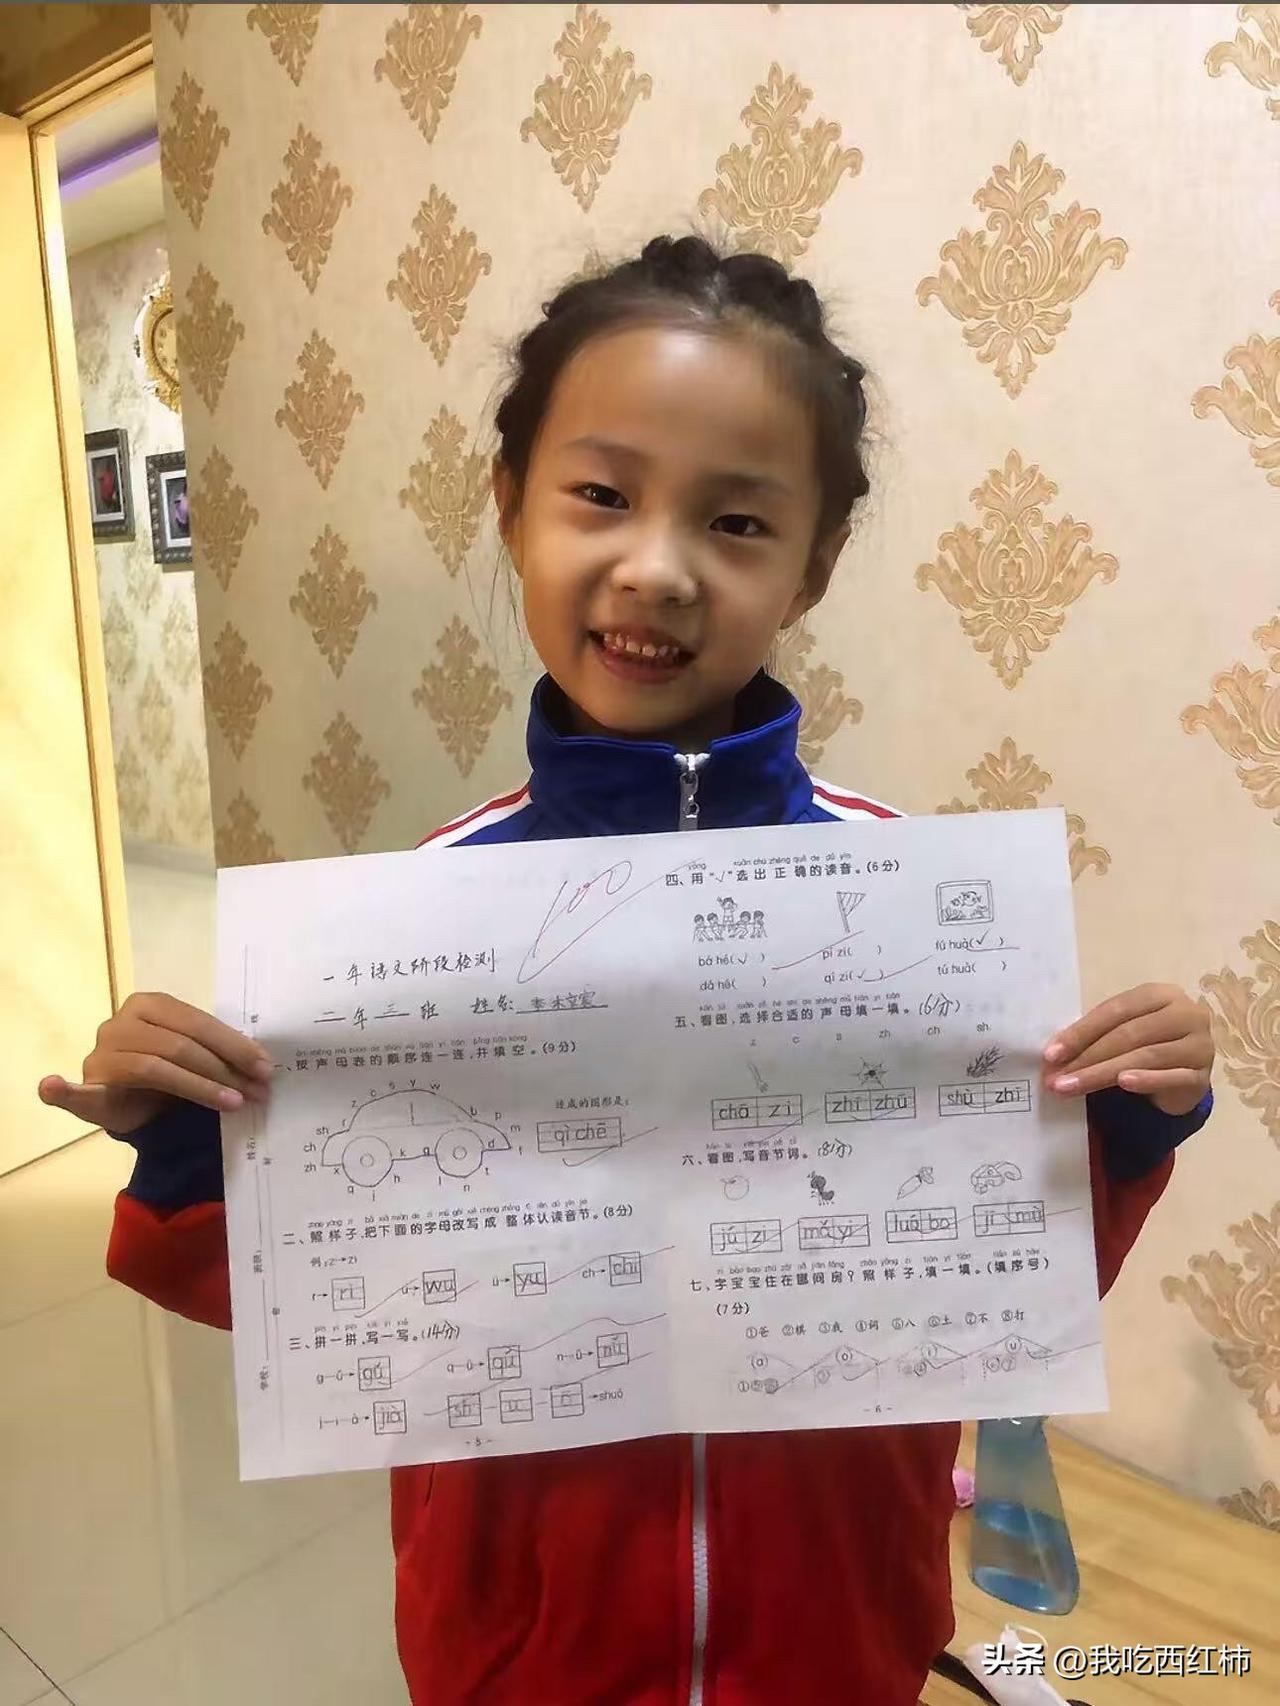 100
一年语文阶段检测
二年三班 姓名:
àn shēng mǔ biǎo de shùn xù lián yi lián bìng tián kòng
一、按声母表的顺序连一连,并填空。(9分)
z c s y w
sh r b p
ch m
zh x k g d f
q j h l n t
连成的图形是:
qì chē
二、照样子,把下面的字母改写成 整体认读音节。(8分)
例:z→zi
r→ ri
ü→ yu
ch→ chi
pīn yi pīn xiě yi xiě
三、拼一拼,写一写。(14分)
jià
sh u
→shuō
- 5 -
yòng xuǎn chū zhèng què de dú yīn
四、用“√”选出正确的读音。(6分)
bá hé(√) pí zi( ) tú huà(√)
dá hé( ) qí zi(√) tú huà( )
kàn tú xuǎn zé hé shì de shēng mǔ tián yi tián
五、看图,选择合适的声母填一填。(6分)
z c s zh ch sh
chā zi zhī zhū shù zhī
六、看图,写音节词。(8分)
mǎ yǐ luó bo
zì bǎo bao zhù zài nǎ jiān fáng zhào yàng zi tián yi tián tián xù hào
七、字宝宝住在哪间房?照样子,填一填。(填序号)
(7分)
①爸 ②棋 ③我 ④词 ⑤八 ⑥土 ⑦不 ⑧打
(a) (o) (i) (u)
- 6 -
学校: 班级: 姓名:
头条 @我吃西红柿